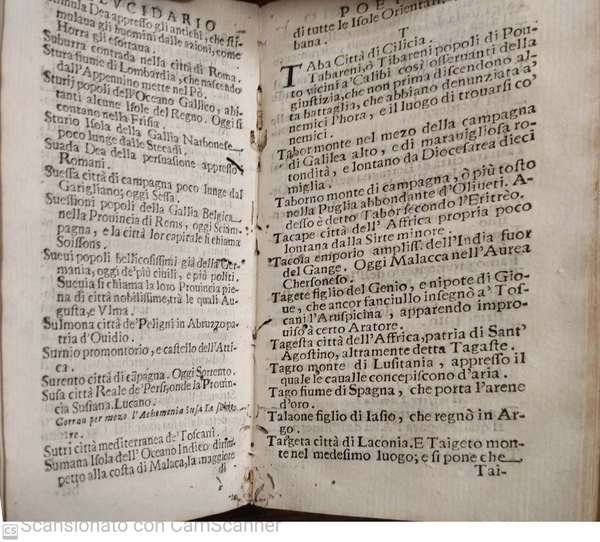 LVCIDARIO
mula Dea appresso gli antichi, che sti-
mulaua gli huomini dalle azioni, come
Horra gli esortaua.
Suburra contrada nella città di Roma.
Stura fiume di Lombardia, che nascendo
dall'Appennino mette nel Pò.
Sturij popoli dell'Oceano Gallico, abi-
tanti alcune Isole del Regno. Oggi si
contano nella Frisia.
Sturio Isola della Gallia Narbonese
poco lunge dalle Stecadi.
Suada Dea della persuasione appresso
Romani.
Suessa città di campagna poco lunge dal
Garigliano; oggi Sessa.
Suessioni popoli della Gallia Belgica
nella Prouincia di Rems, oggi Sciam-
pagna, e la città lor capitale si chiama
Soissons.
Sueui popoli bellicosissimi già della Ger-
mania, oggi de'più ciuili, e più politi.
Sueuia si chiama la loro Prouincia pie-
na di città nobilissime, trà le quali Au-
gusta, e Vlma.
Sulmona città de'Peligni in Abruzzo pa-
tria d'Ouidio.
Surnio promontorio, e castello dell'Atti-
ca.
Surento città di cāpagna. Oggi Sorrento.
Susa città Reale de'Persi, onde la Prouin-
cia Susiana. Lucano.
Corran per mezo l'Achemenia Susa
ire.
Sutri città mediterranea de'Toscani.
Sumana Isola dell'Oceano Indico dirim-
petto alla costa di Malaca, la maggiore
di
POE
di tutte le Isole Orientali
bana.
T
TAba Città di Cilicia.
Tabareni, ò Tibareni popoli di Pon-
to vicini a'Calibi così osseruanti della
giustizia, che non prima discendono al-
la battaglia, che abbiano denunziata a'
nemici l'hora, e il luogo di trouarsi co'
nemici.
Tabor monte nel mezo della campagna
di Galilea alto, e di marauigliosa ro-
tondità, e lontano da Diocesarea dieci
miglia.
Taborno monte di campagna, ò più tosto
nella Puglia abbondante d'Oliueti. A-
desso è detto Tabor secondo l'Eritrèo.
Tacape città dell'Affrica propria poco
lontana dalla Sirte minore.
Tacola emporio ampliss. dell'India fuor
del Gange. Oggi Malacca nell'Aurea
Chersoneso.
Tagete figlio del Genio, e nipote di Gio-
ue, che ancor fanciullo insegnò a'Tos-
cani l'Aruspicina, apparendo impro-
uiso à certo Aratore.
Tagesta città dell'Affrica, patria di Sant'
Agostino, altramente detta Tagaste.
Tagro monte di Lusitania, appresso il
quale le caualle concepiscono d'aria.
Tago fiume di Spagna, che porta l'arene
d'oro.
Talaone figlio di Iasio, che regnò in Ar-
go.
Targeta città di Laconia. E Taigeto mon-
te nel medesimo luogo; e si pone che
Tai-
CS Scansionato con CamScanner